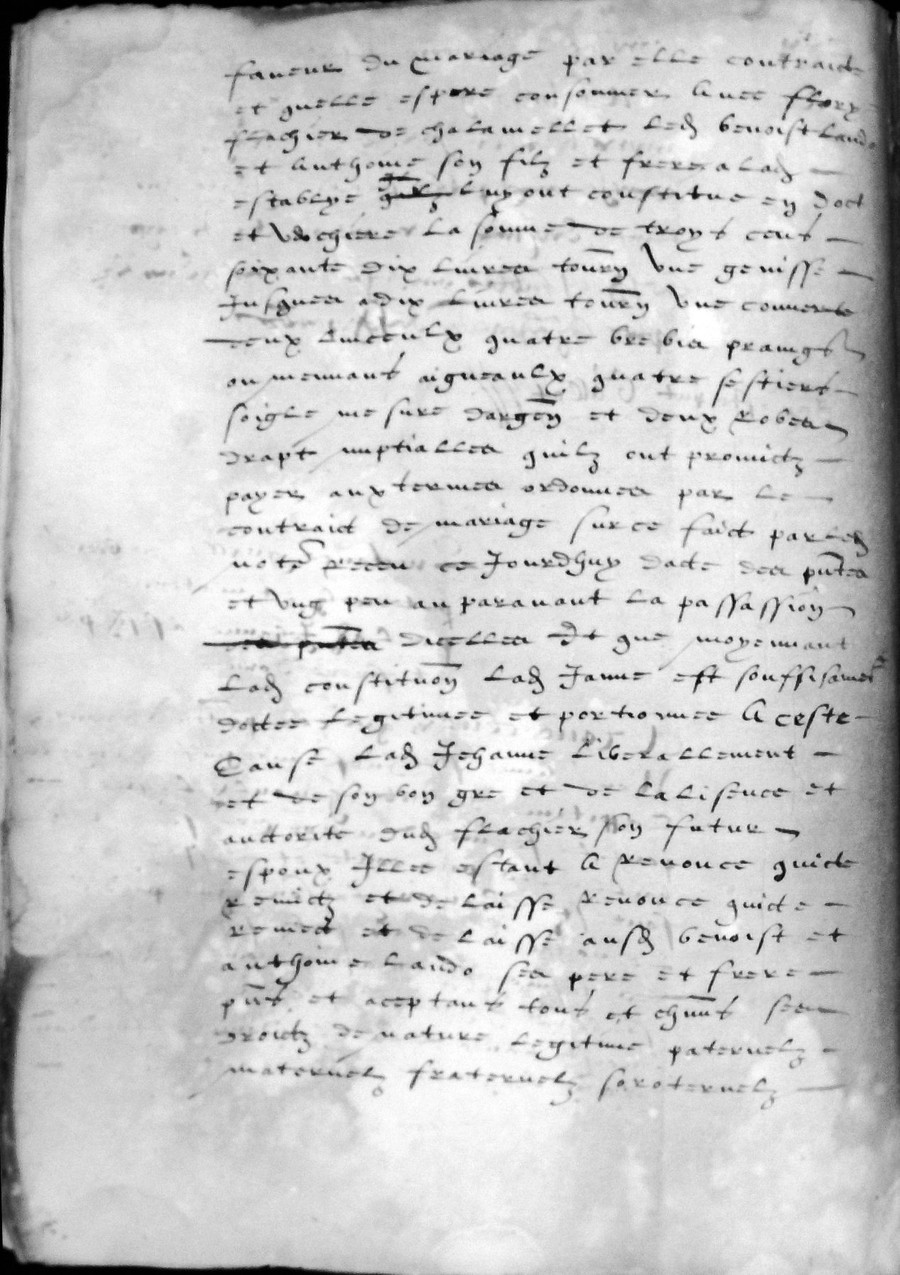 faveur du mariage par elle contraict
et quelle espere consommer avec fflory
flachier de chalamellet led benoist Lando
et Anthoine son filz et frere a lad
establye luy ont constitue en doct
et vechiere la somme de troys cens
soixante dix livres tourn une genisse
Jusques a dix livres tourn une couverte
deux linceulx quatre brebis praings
ou mennans aigneaulx quatre sestiers
soigle mesure dargen et deux Robes
drapt nuptialles quilz ont promictz
payer aux termes ordonnes par le
contraict de mariage sur ce faict par led
note receu ce Jourdhuy dacte des pntes
et ung peu au paravant la passassion
des pntes dicelles Et que moyennant
Lad constituon Lad Janne est souffisament
doctee legitimee et portionnee A ceste
Cause Lad Jehanne Liberallement
et de son bon gre et de la lisence et
auctorite dud flachier son futur
espoux Illec estant A Renonce quicte
Remictz et delaisse Renonce quicte
remect et delaisse ausd benoist et
anthoine Lando ses pere et frere
pns et aceptans tous et chuns ses
droictz de nature legitime paternelz
maternelz fraternelz soroternelz